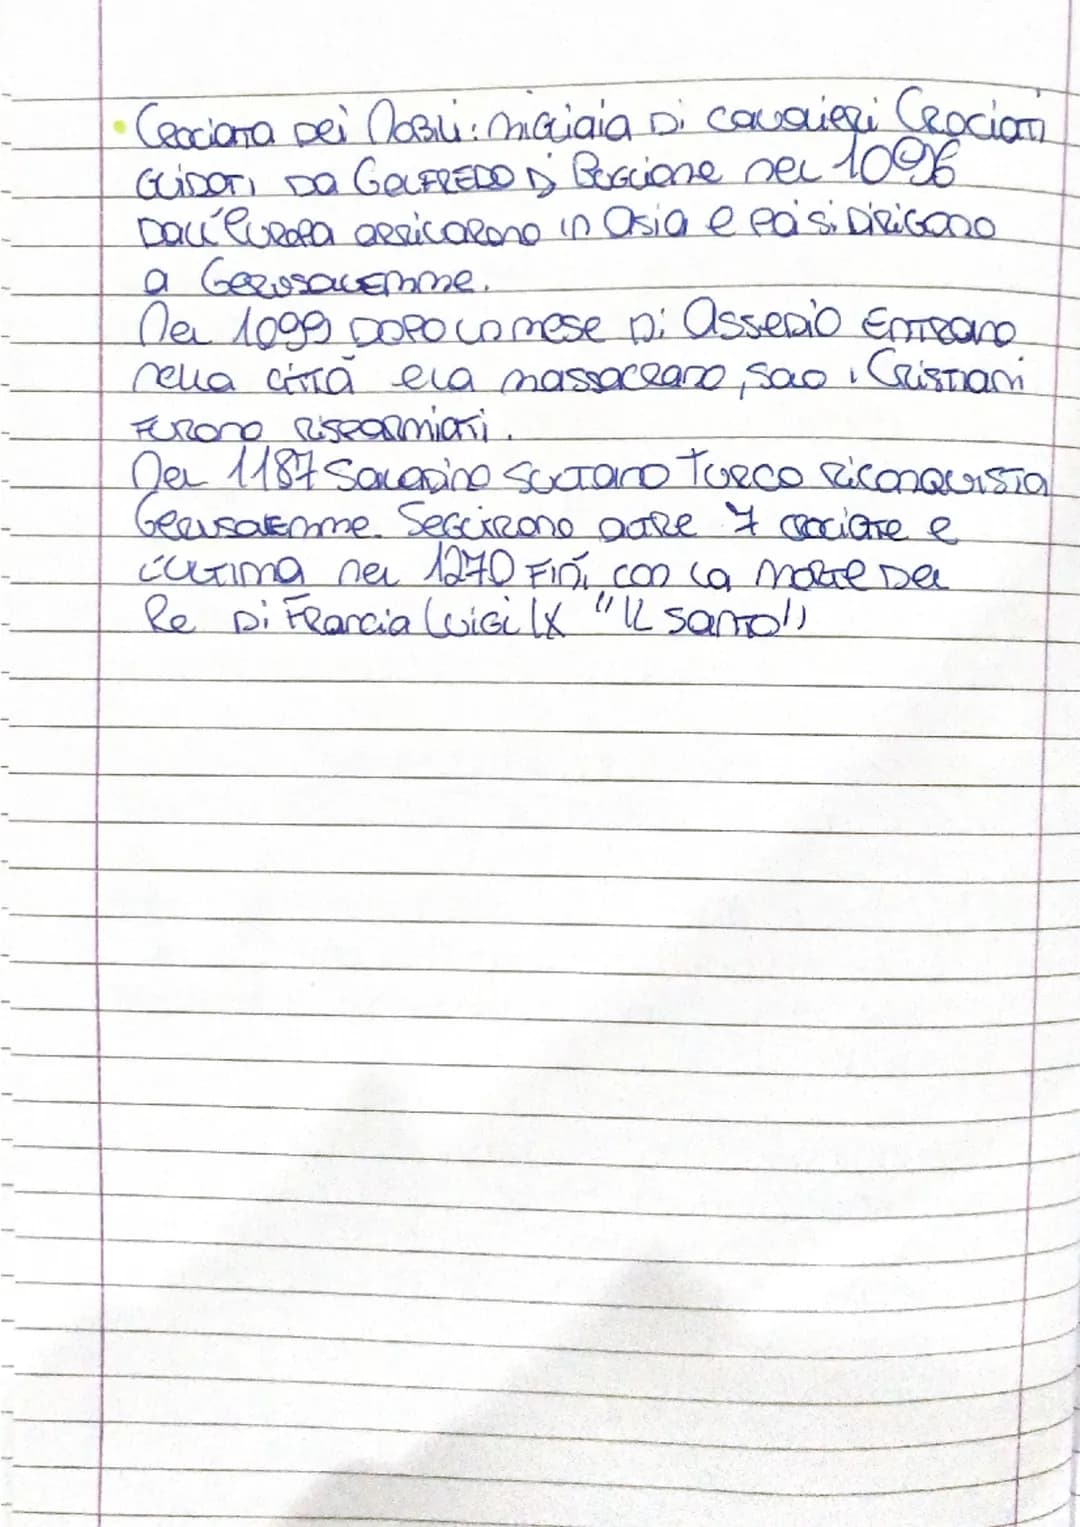 • Crociata dei Nobili: migliaia di cavalieri Crociati
guidati da Goffredo di Buglione nel 1096
dall'Europa arrivarono in Asia e poi si dirigono
a Gerusalemme.
Nel 1099 dopo un mese di assedio entrano
nella città e la massacrano, solo i Cristiani
furono risparmiati.
Nel 1187 Saladino sultano turco riconquista
Gerusalemme. Seguirono altre 7 crociate e
l'ultima nel 1270 finì con la morte del
Re di Francia Luigi IX "Il santo"